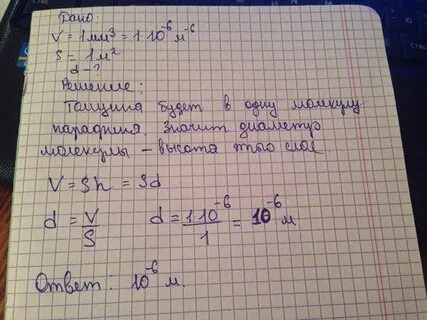 Дано:
V = 1мм³ = 1·10⁻⁶ м⁻⁶
S = 1м²
d - ?
Решение:
Толщина будет в одну молекулу
парафина. Значит диаметр
молекулы – высота этого слоя.
V = Sh = Sd
d = V/S d = 1·10⁻⁶/1 = 10⁻⁶ м
Ответ: 10⁻⁶ м.